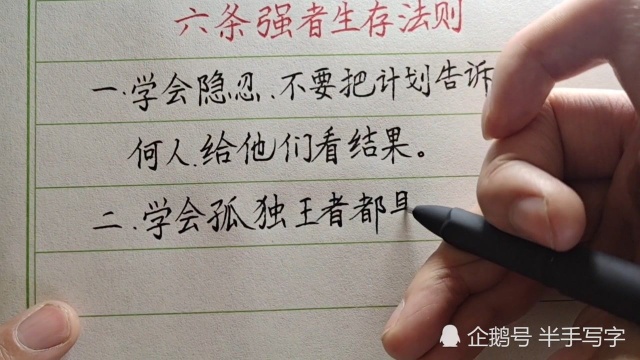 六条强者生存法则
一.学会隐忍.不要把计划告诉
何人.给他们看结果。
二.学会孤独王者都
企鹅号 半手写字